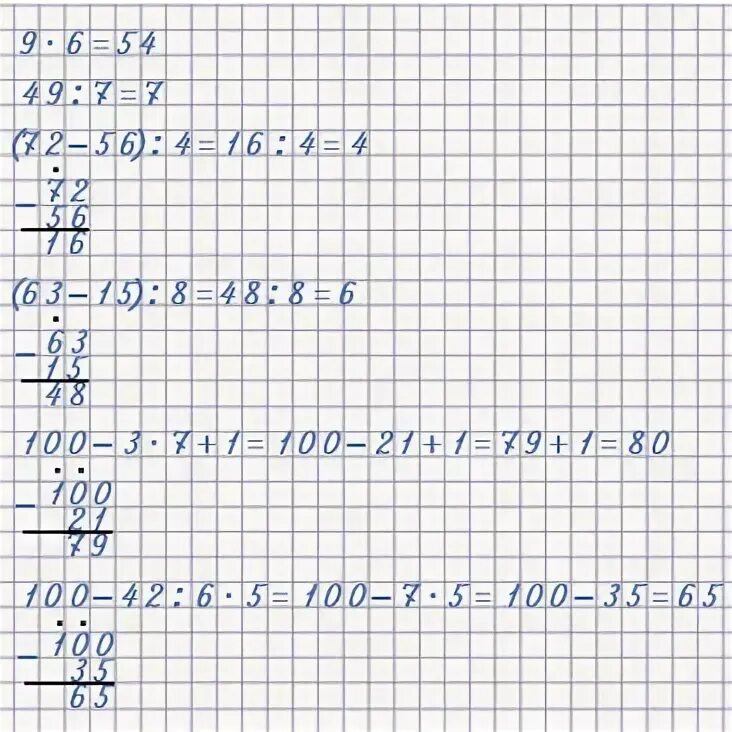 9 · 6 = 54
49 : 7 = 7
(72 - 56) : 4 = 16 : 4 = 4
- 72
56
16
(63 - 15) : 8 = 48 : 8 = 6
- 63
15
48
100 - 3 · 7 + 1 = 100 - 21 + 1 = 79 + 1 = 80
- 100
21
79
100 - 42 : 6 · 5 = 100 - 7 · 5 = 100 - 35 = 65
- 100
35
65